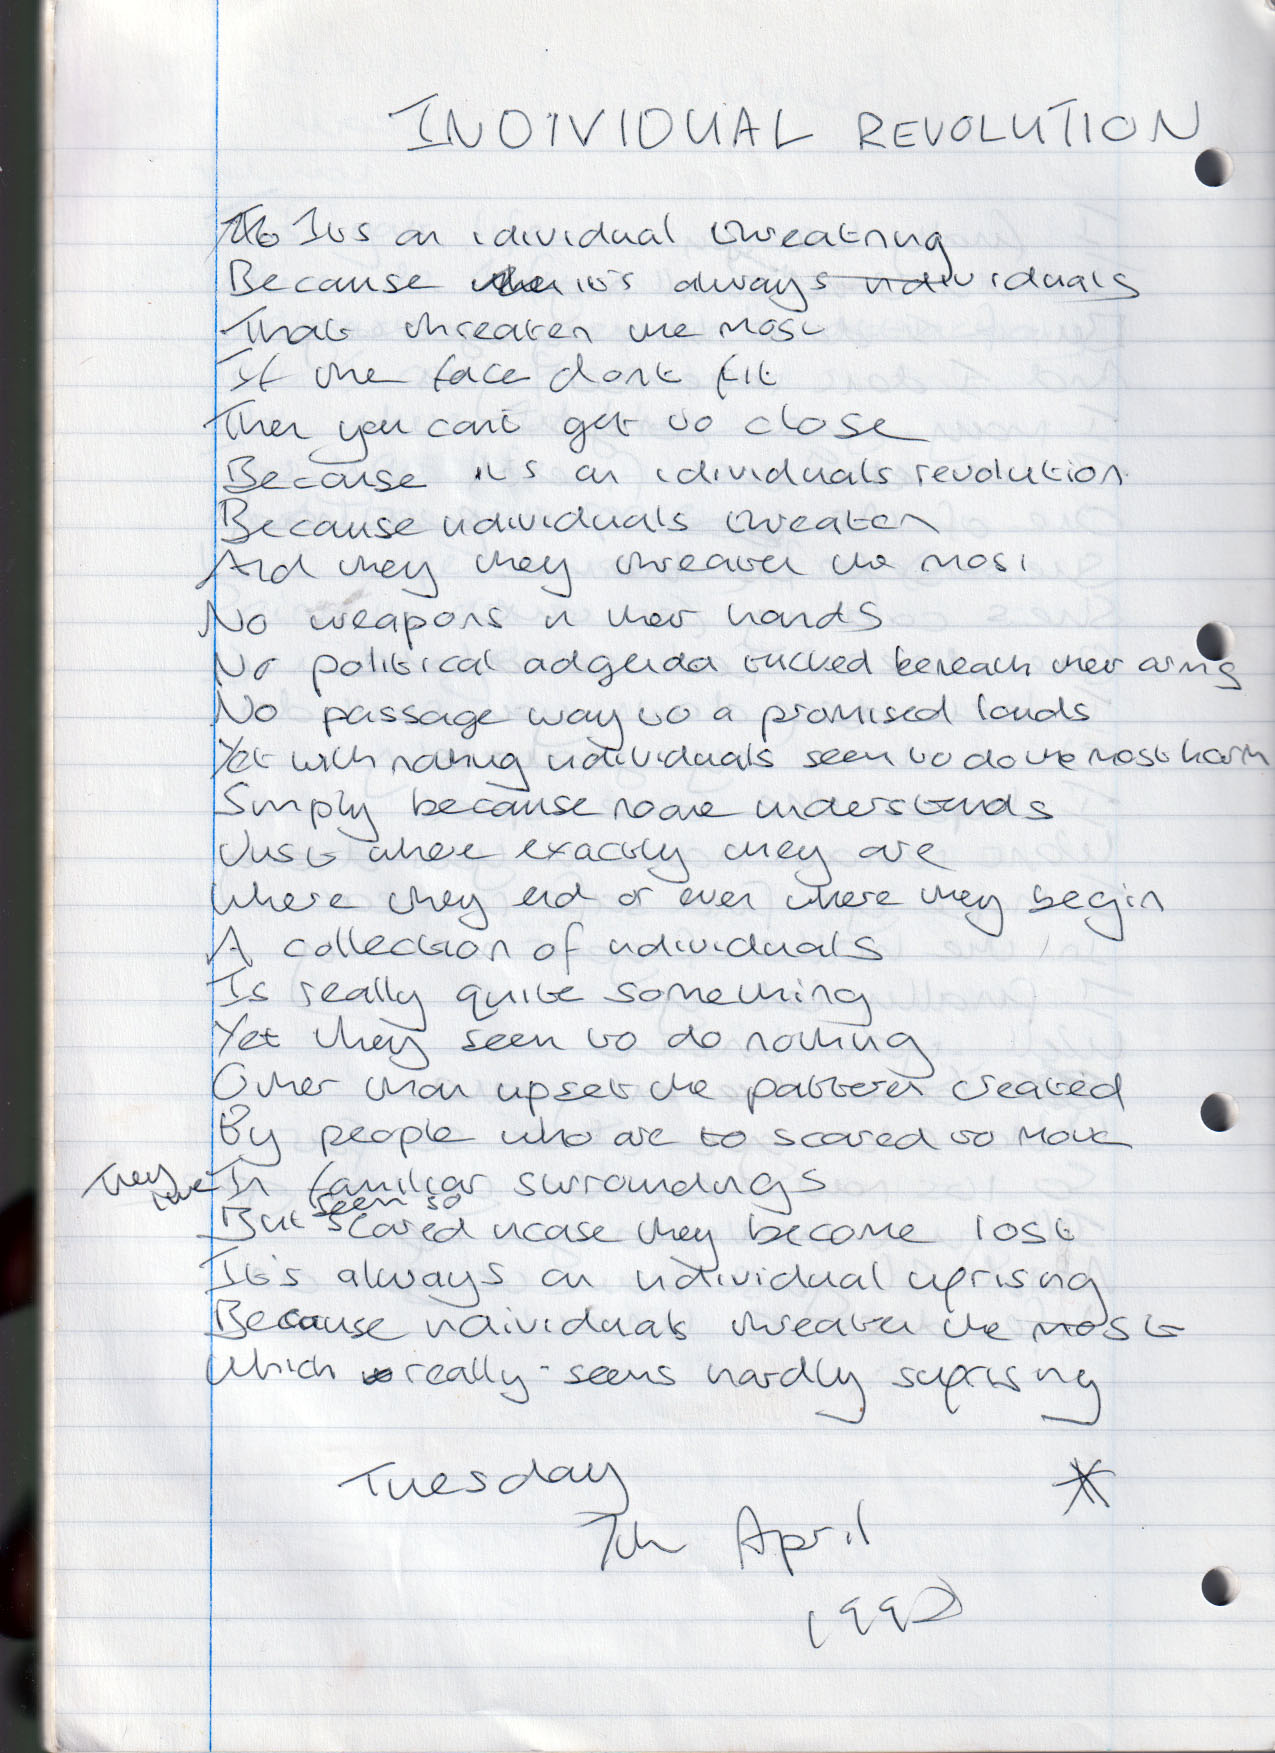 INDIVIDUAL REVOLUTION
It's an idividual threatning
Because it's always individuals
That threaten the most
If the face dont fit
Then you cant get to close
Because it's an idividuals revolution
Because individuals threaten
And they they threaten the most
No weapons in their hands
No political adgenda tucked beneath their arms
No passage way to a promised lands
Yet with nothing individuals seem to do the most harm
Simply because noone understands
Just where exactly they are
Where they end or even where they begin
A collection of individuals
Is really quite something
Yet they seem to do nothing
Other than upset the pattern created
By people who are to scared to move
They live In familiar surroundings
seem so
But scared incase they become lost
It's always an individual uprising
Because individuals threaten the most
Which really seems hardly suprising
Tuesday *
7th April
1992